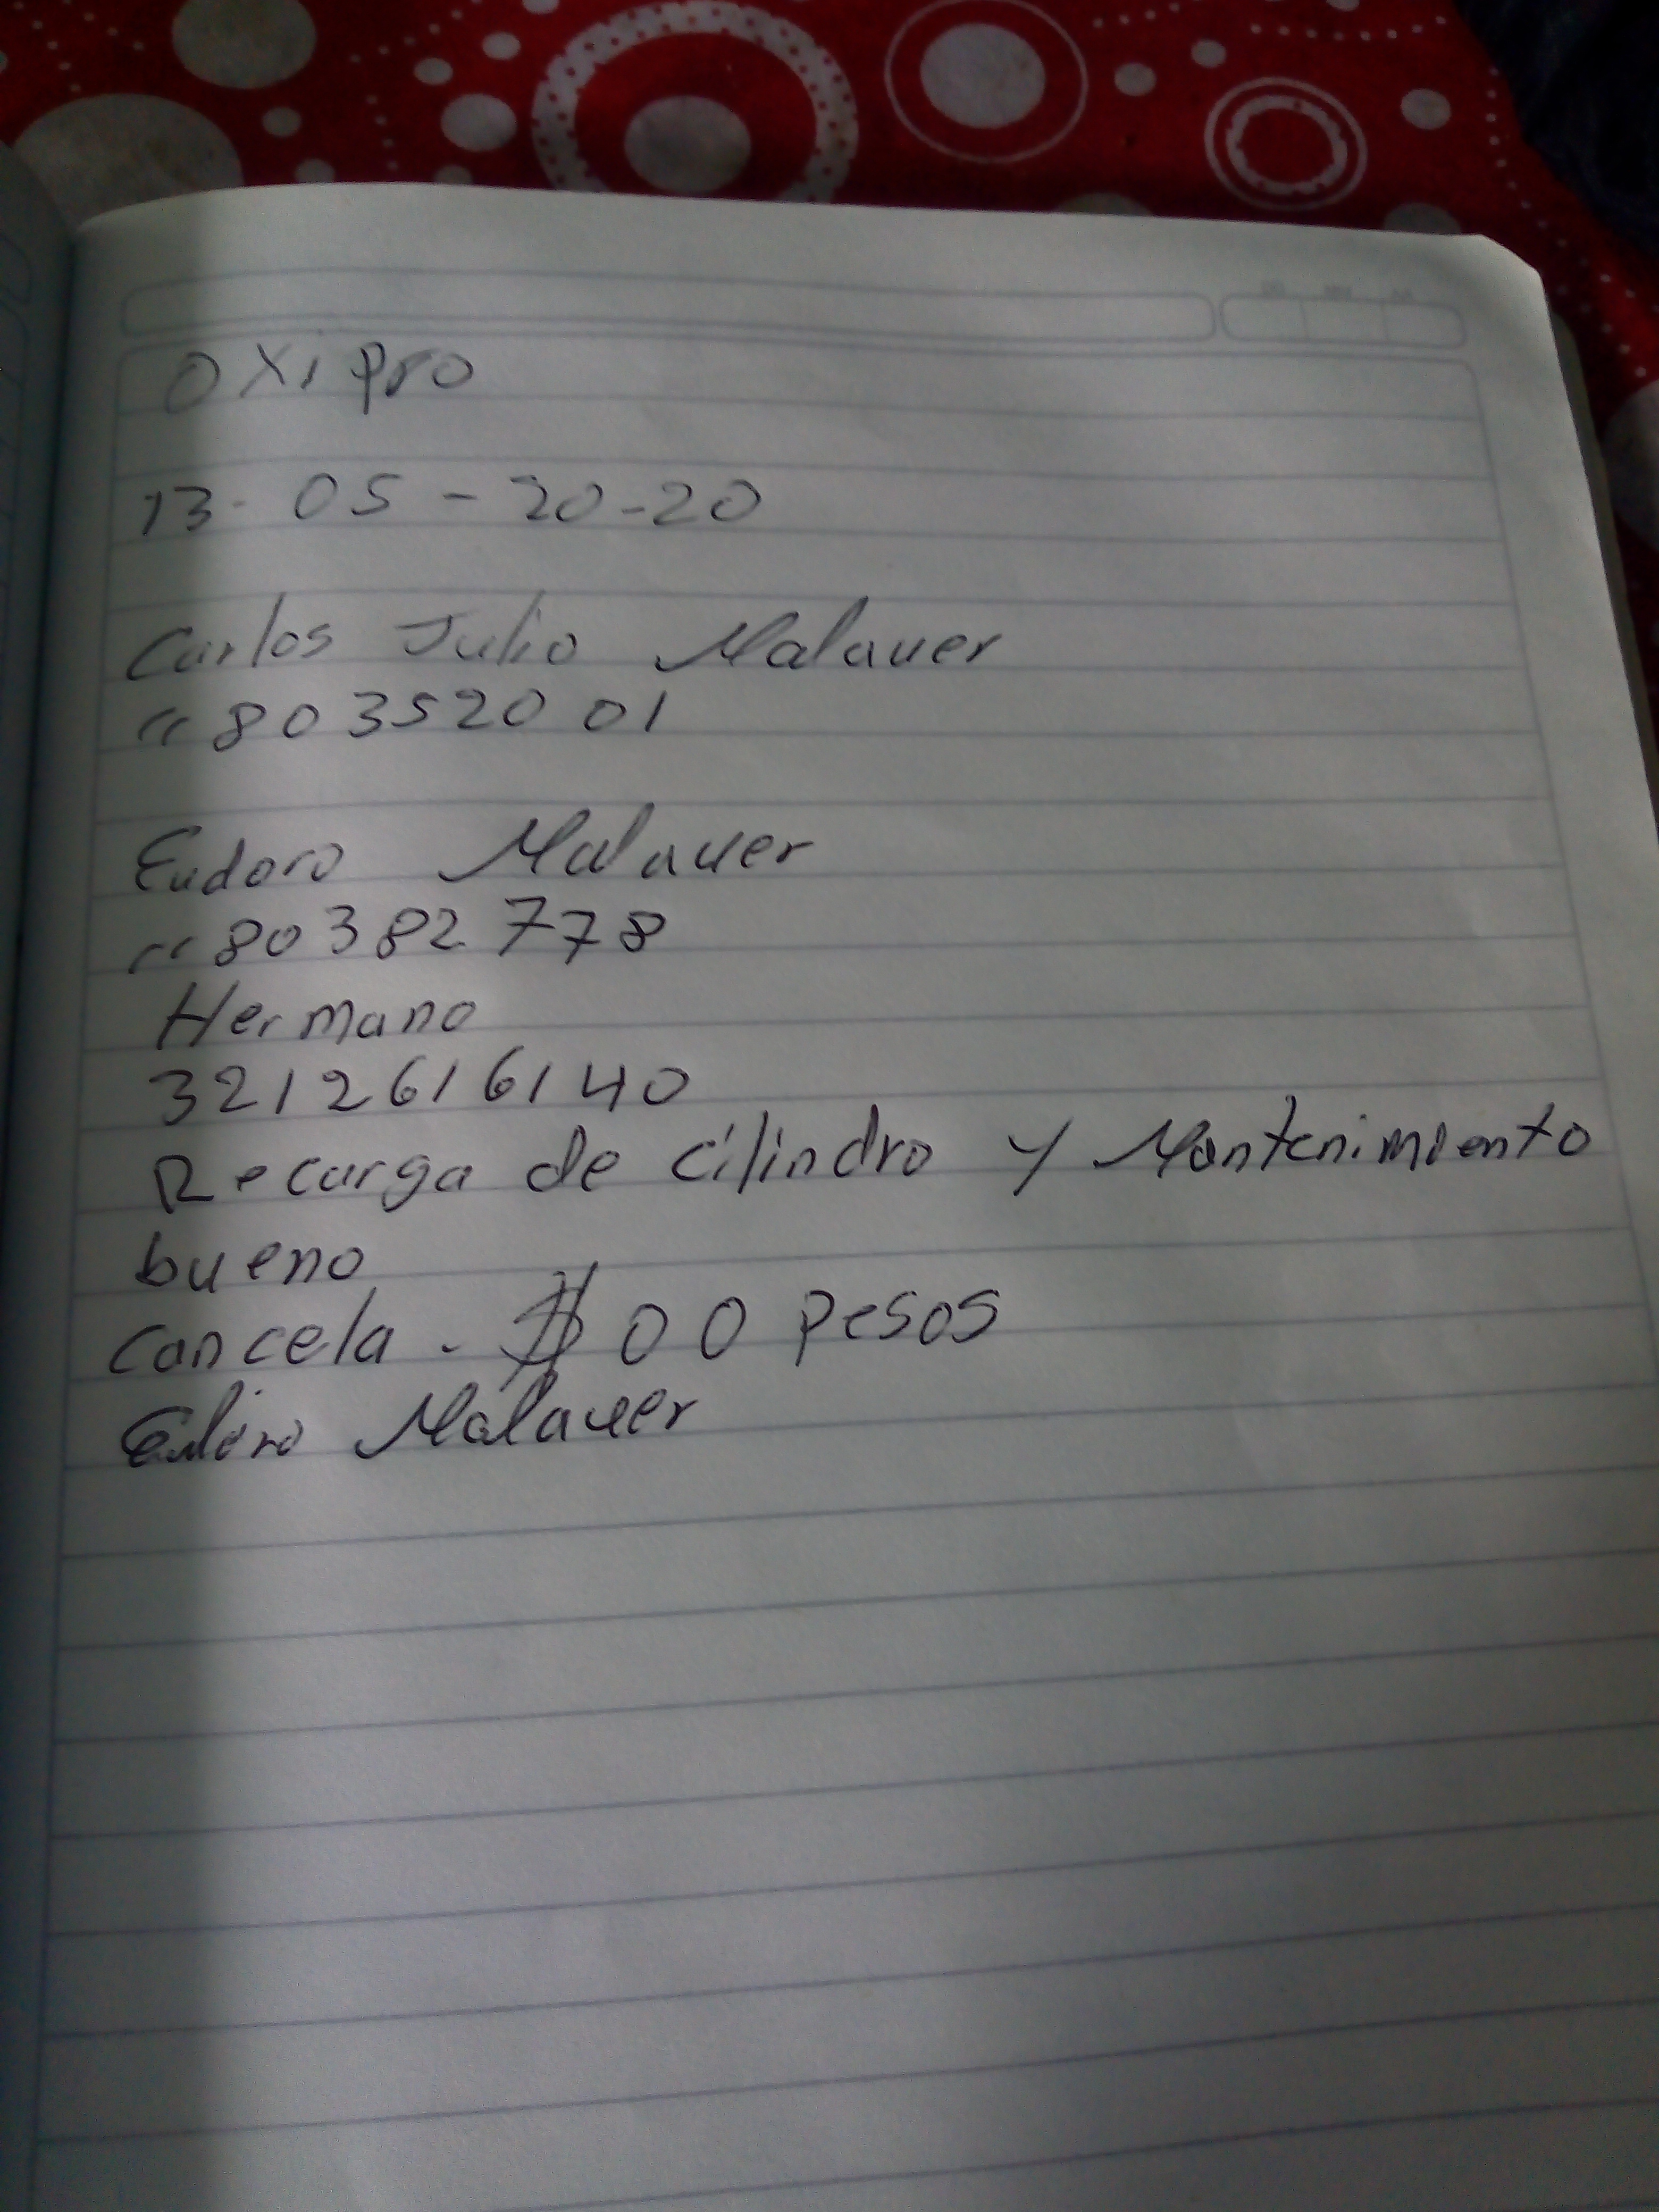 Oxipro
13- 05 - 20-20
Carlos Julio Malaver
cc 80352001
Eudoro Malaver
cc 80382778
Hermano
3212616140
Recarga de cilindro y Mantenimiento
bueno
cancela - $ 00 pesos
Malaver